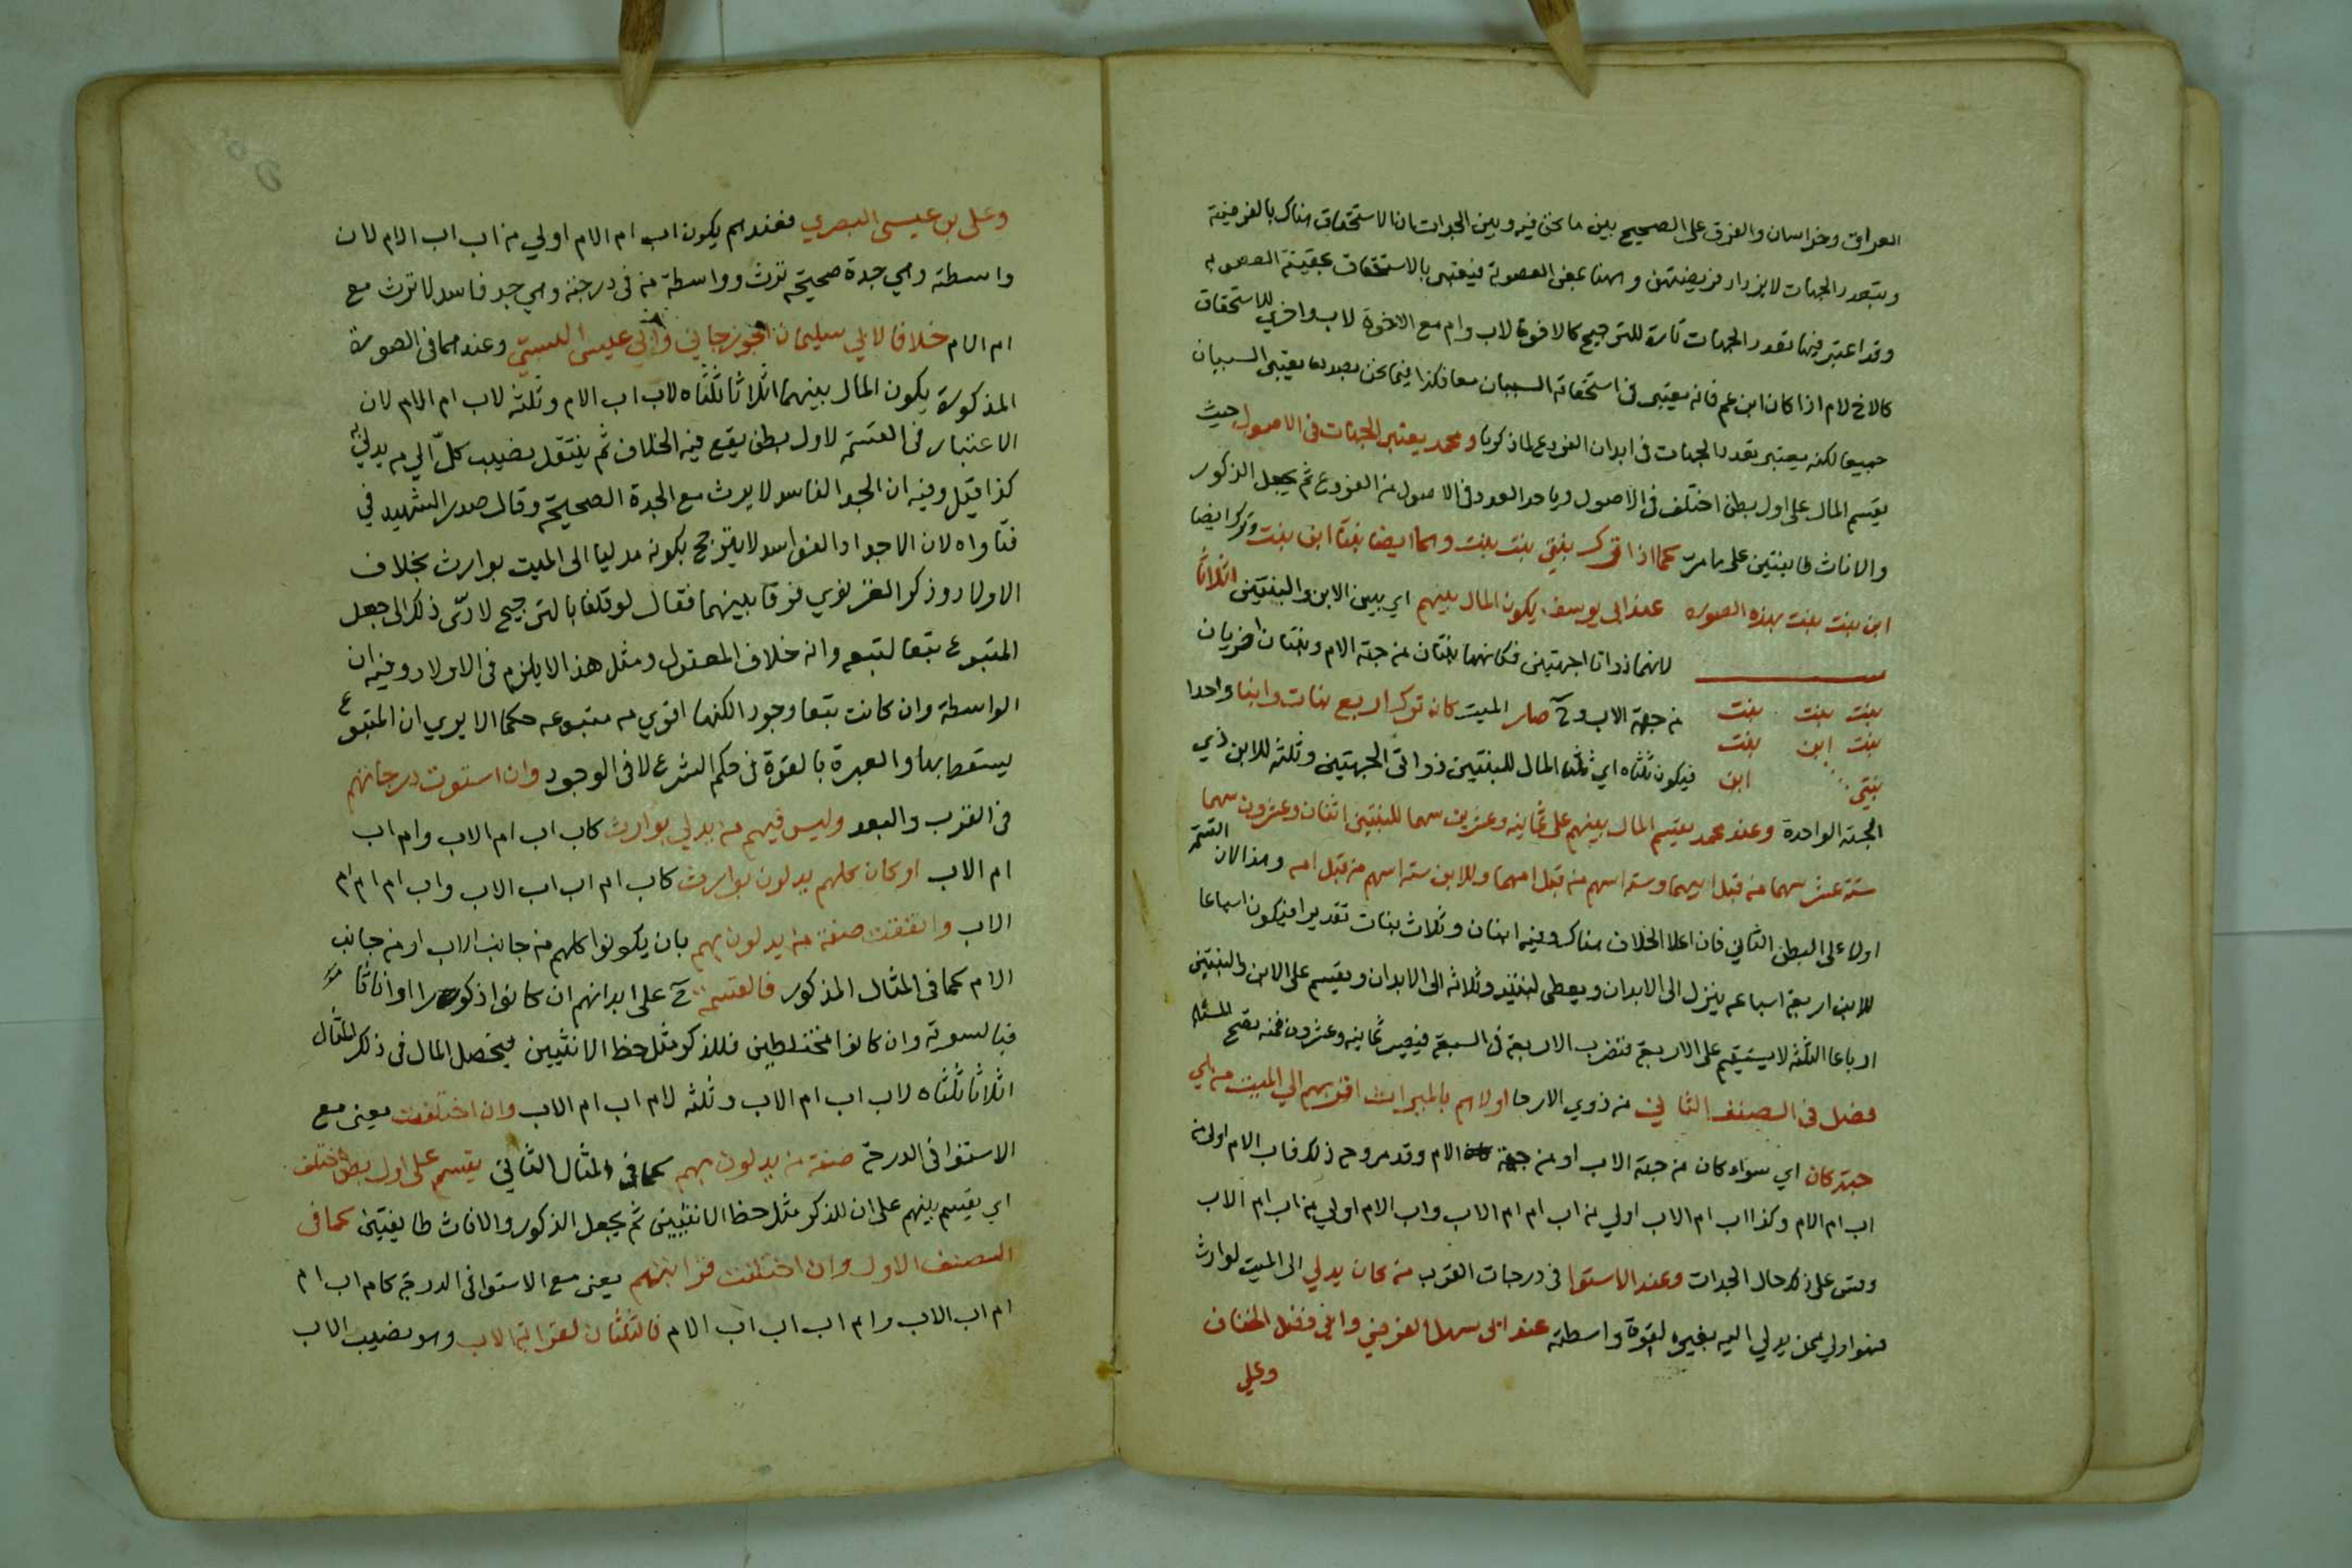 العراق وخراسان والفرق على الصحيح بين ما نحن فيه وبين الجدات ان الاستحقاق هناك بالفرضية
وبتعدد الجهات لا يزداد فريضتهن وههنا بمعنى العصوبة فيعتبر بالاستحقاق بحقيقة العصوبة
وقد اعتبر فيها تعدد الجهات تارة للترجيح كالاخوة لاب وام مع الاخوة لاب واخرى للاستحقاق
كالاخ لام اذا كان ابن عم فانه يعتبر في استحقاقه السببان معا فكذا فيما نحن بصدده يعتبر السببان
جميعا لكنه يعتبر تعدد الجهات في ابدان الفروع لما ذكرنا ومحمد يعتبر الجهات في الاصول حيث
يقسم المال على اول بطن اختلف في الاصول وياخذ العدد في الاصول من الفروع ثم يجعل الذكور
والاناث طايفتين على ما مر كما اذا ترك بنتي بنت بنت وهما ايضا بنتا ابن بنت وترك ايضا
ابن بنت بنت بهذه الصوره عند ابي يوسف يكون المال بينهم اي بين الابن والبنتين اثلاثا
لانهما ذواتا جهتين فكانهما بنتان من جهة الام وبنتان اخريان
بنت بنت بنت من جهة الاب وح صار الميت كانه ترك اربع بنات وابنا واحدا
بنت ابن بنت
بنتي ابن فيكون ثلثاه اي ثلثا المال للبنتين ذواتي الجهتين وثلثه للابن ذي
الجهة الواحدة وعند محمد يقسم المال بينهم على ثمانيه وعشرين سهما للبنتين اثنان وعشرون سهما
ستة عشر سهما من قبل ابيهما وسته اسهم من قبل امهما وللابن سته اسهم من قبل امه وهذا لان القسمة
اولا على البطن الثاني فان اعلا الخلاف هناك وفيه ابنان وثلاث بنات تقديرا فيكون اسباعا
للابن اربعة اسباعه ينزل الى الابدان ويعطى لبنتيه وثلاثه الى الابدان ويقسم على الابن والبنتين
ارباعا الثلثه لا يستقيم على الاربعة فتضرب الاربعة في السبعة فيصير ثمانيه وعشرون فمنه تصح المسئلة
فصل في الصنف الثاني من ذوي الارحام اولاهم بالميراث اقربهم الي الميت من اي
جهة كان اي سواء كان من جهة الاب او من جهة الام وقد مر وجه ذلك فاب الام اولى من
اب ام الام وكذا اب ام الاب اولي من اب ام ام الاب واب الام اولي من اب ام الاب
وقس على ذلك حال الجدات وعند الاستوا في درجات القرب من كان يدلي الى الميت لوارث
فهو اولي ممن يدلي اليه بغيره لقوة واسطته عند ابي سهل الفرضي وابي فضل الخفاف
وعلي
وعلى بن عيسى البصري فعندهم يكون اب ام الام اولي من اب اب الام لان
واسطته وهي جدة صحيحة ترث وواسطة من في درجته وهي جد فاسد لا ترث مع
ام الام خلافا لابي سليمان الجوزجاني وابي عليسى البستي وعندهما في الصورة
المذكورة يكون المال بينهما اثلاثا ثلثاه لاب اب الام وثلثه لاب ام الام لان
الاعتبار في القسمة لاول بطن يقع فيه الخلاف ثم ينتقل نصيب كل الي من يدلي به
كذا قيل وفيه ان الجد الفاسد لا يرث مع الجدة الصحيحة وقال صدر الشهيد في
فتاواه لان الاجداد الفواسد لا يترجح بكونه مدليا الى الميت بوارث بخلاف
الاولاد وذكر الغزنوي فرقا بينهما فقال لو قلنا بالترجيح لادى ذلك الى جعل
المتبوع تبعا لتبعه وانه خلاف المعقول ومثل هذا لا يلزم في الاولاد وفيه ان
الواسطة وان كانت تبعا وجودا لكنها اقوي من متبوعه حكما الا يري ان المتبوع
يسقط بها والعبرة بالقوة في حكم الشرع لا في الوجود وان استوت درجاتهم
في القرب والبعد وليس فيهم من يدلي بوارث كاب اب ام الاب وام اب
ام الاب او كان كلهم يدلون بوارث كاب ام اب اب الاب واب ام ام ام
الاب واتفقت صفة من يدلون بهم بان يكونوا كلهم من جانب الاب او من جانب
الام كما في المثال المذكور فالقسمة ح على ابدانهم ان كانوا ذكورا او اناثا
فبالسوية وان كانوا مختلطين فللذكر مثل حظ الانثيين فيحصل المال في ذلك المثال
اثلاثا ثلثاه لاب اب ام الاب وثلثه لام اب ام الاب وان اختلفت يعني مع
الاستوا في الدرجة صفة من يدلون بهم كما في المثال الثاني يقسم على اول بطن اختلف
اي يقسم بينهم على ان للذكر مثل حظ الانثيين ثم يجعل الذكور والاناث طايفتين كما في
الصنف الاول وان اختلفت قرابتهم يعني مع الاستوا في الدرجة كام اب ام
ام اب الاب وام اب اب اب الام فالثلثان لقرابة الاب وهو نصيب الاب